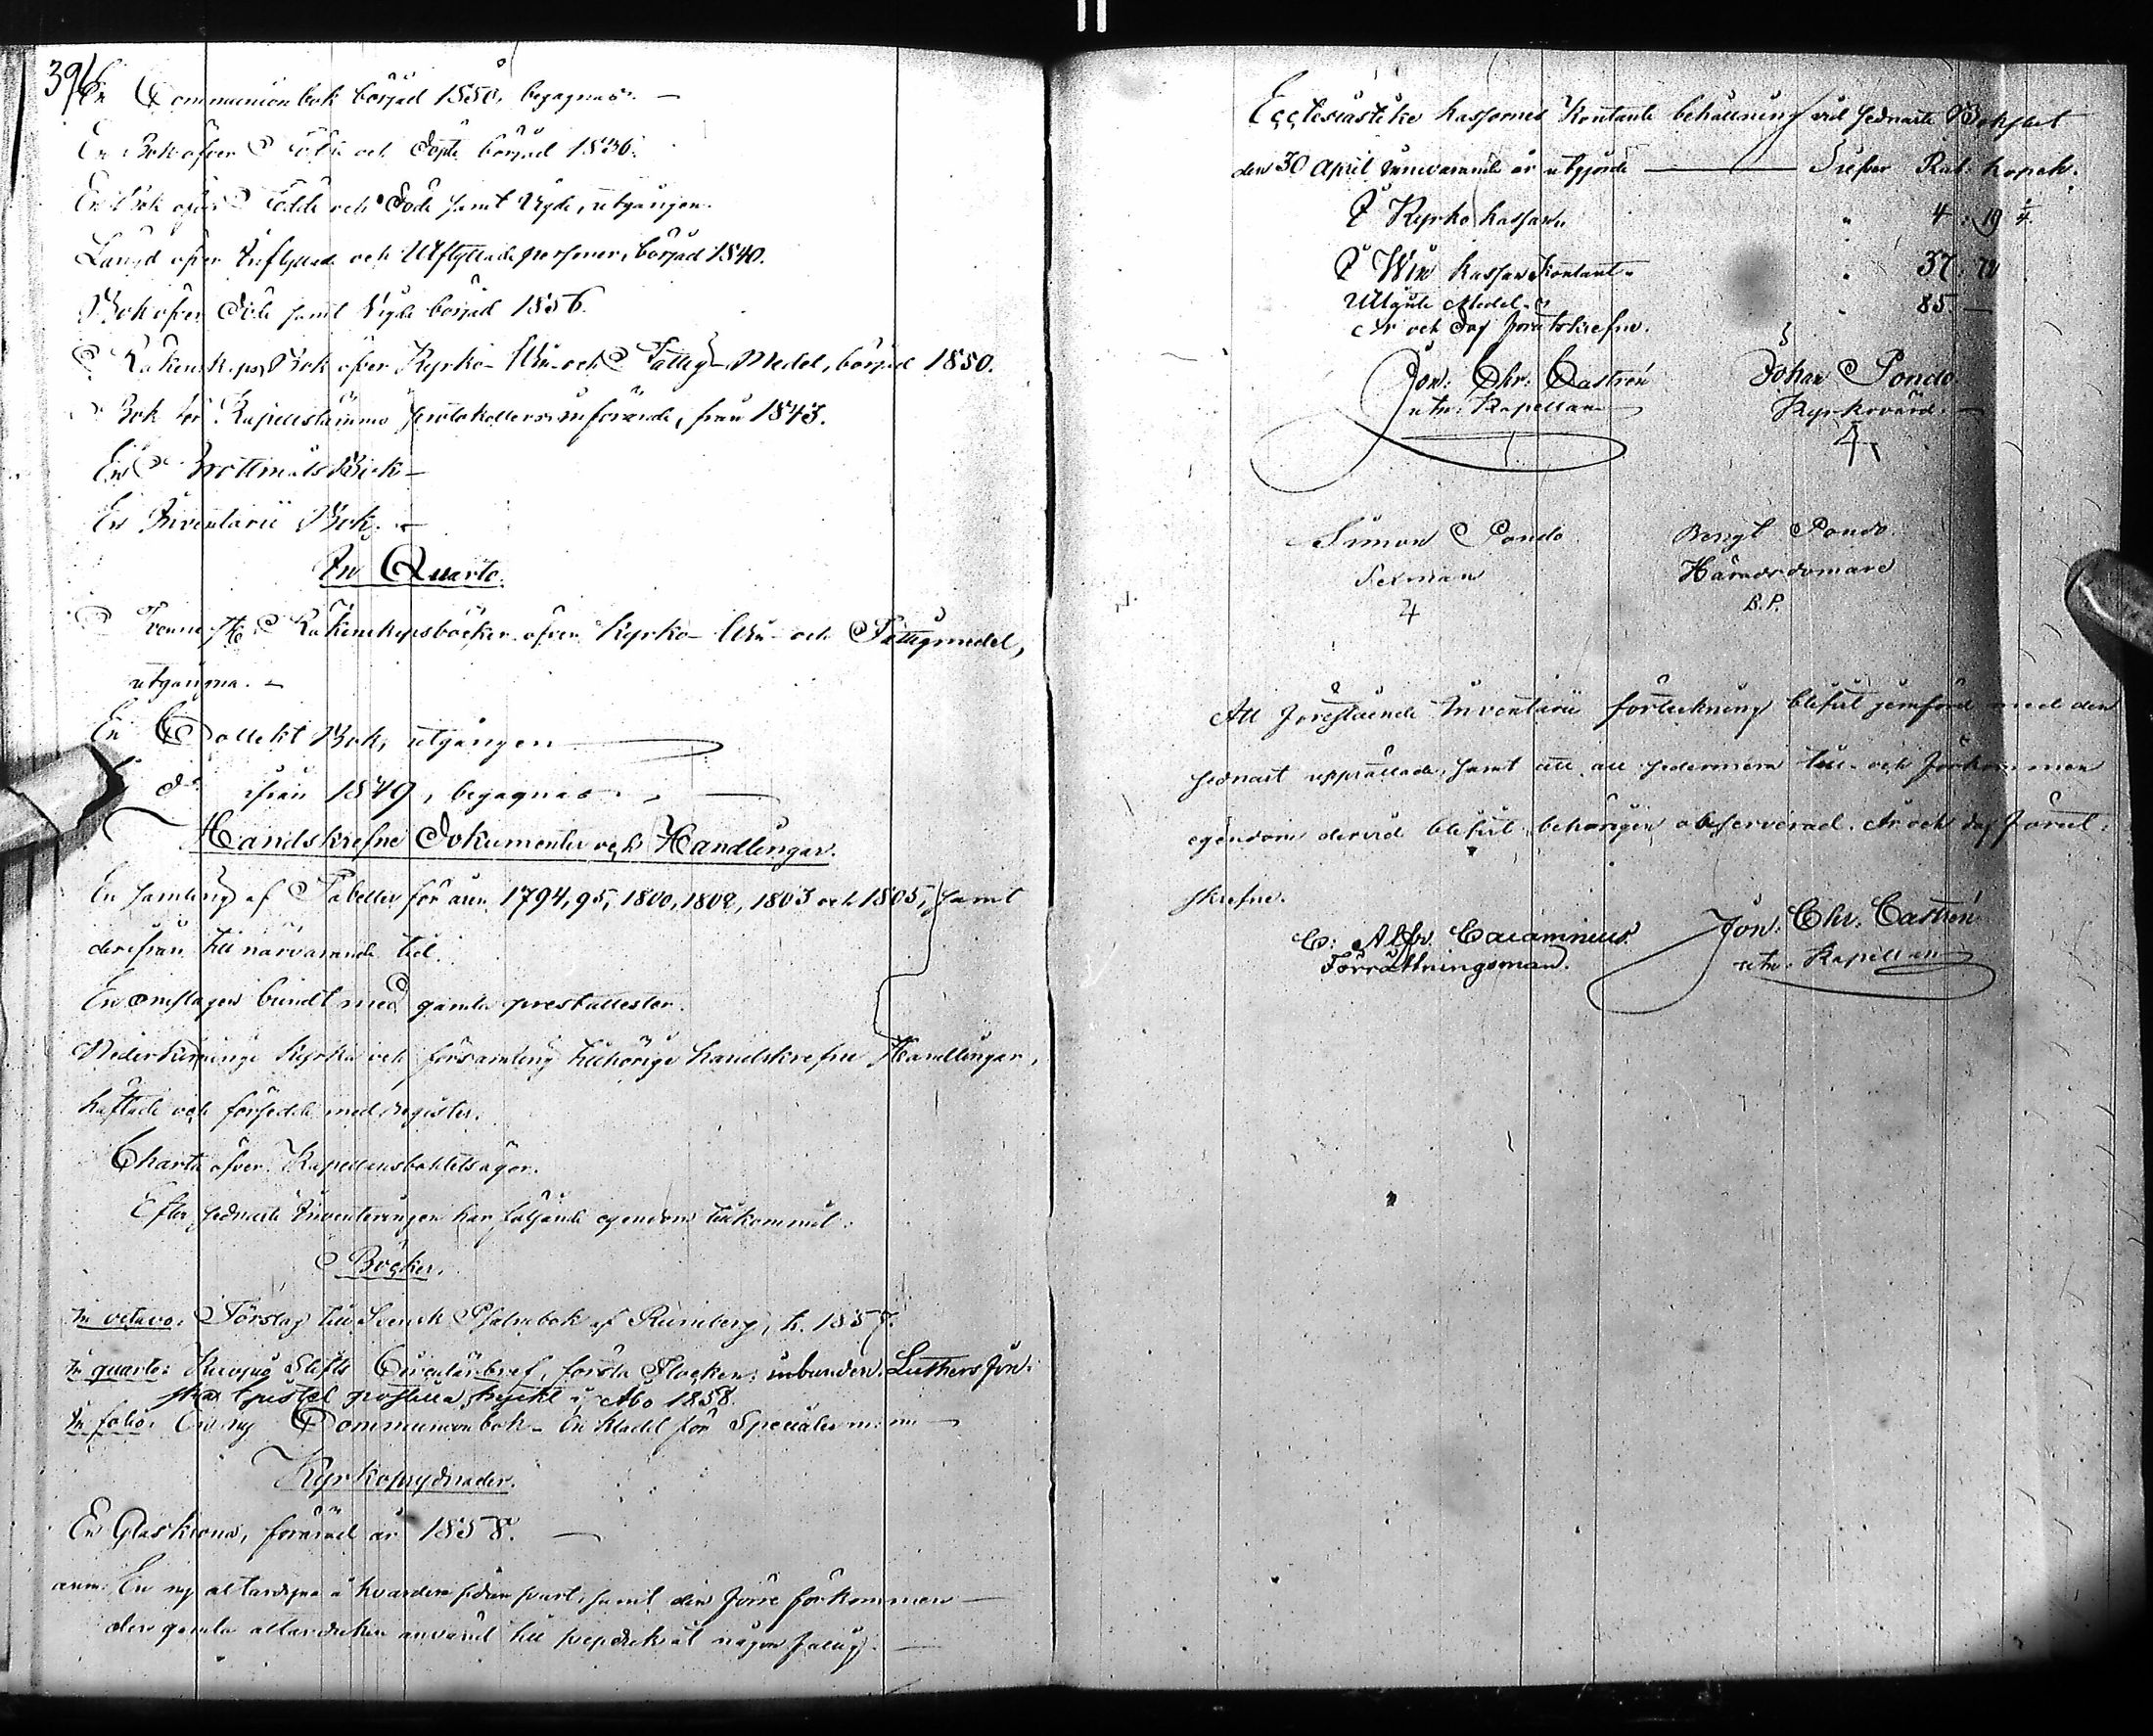 396
En Communion bok börjad 1850, begagnas. —
En Bok öfver Födde och Döpte börjad 1836.
En Bok öfver Födde och Döde samt Vigde, utgången.
Längd öfver Inflyttade och Utflyttade personer, börjad 1840.
Bok öfver Döde samt Vigde börjad 1856.
Räkenskaps Bok öfver Kyrko- Vin- och Fattig-Medel, börjad 1850.
Bok för Kapellstämmo protokollers införande, från 1843.
En Brottmåls Bok —
En Inventarii Bok. —
In Quarto.
Trenne st. Räkenskapsböcker öfver Kyrko- Vin- och Fattigmedel,
utgångna. —
En Collekt Bok, utgången
d:o ifrån 1849, begagnas.
Handskrefne Dokumenter och Handlingar.
En samling af Tabeller för åren 1794, 95, 1800, 1802, 1803 och 1805, samt
derifrån till närvarande tid.
En omslagen bundt med gamla prestattester.
Nederkiminge Kyrka och församling tillhörige handskrefne Handlingar,
häftade och försedde med register.
Charta öfver Kapellansbohletsägor.
Efter sednaste Inventeringen har följande egendom tillkommit:
Böcker.
In octavo: Förslag till Svensk Psalmbok af Runeberg, h. 1857.
In quarto: Kuopio Stifts Circulärbref, första Flocken: inbunden. Luthers
postilla, tryckt i Åbo 1858.
In folio: En ny Communion bok — En kladd för Specialer m: m: —
Kyrkoprydnader.
En Glaskrona, förärad år 1858. —
anm: En ny altarduk å hvardera sidan svart, samt den förre förkommen —
den gamla altarduken använd till

Ecclesiastike kassornes Kontante behållning vid sednaste Bokslut
den 30 April innevarande år utgjorde — Silfver Rub: kopek.
I Kyrko kassan " 4: 19 1/4.
I Win kassan Kontant " 37: 72
Utlånte Medel " 85. —
År och Dag förutskrefne.
Jon: Chr: Castrén Johan Pondo
utn: Kapellan Kyrkovärd. —
Simon Pondo Bengt Pondo
Sexman Häradsdomare
B. P.
Att förestående Inventarii förteckning blifvit jemförd med den
sednast upprättade, samt att all sedermera till- och förkommen
egendom dervid blifvit behörigen observerad. År och dag förut-
skrefne.
C: Alfr. Calamnius Jon: Chr: Castrén
Förrättningsman. utn: Kapellan